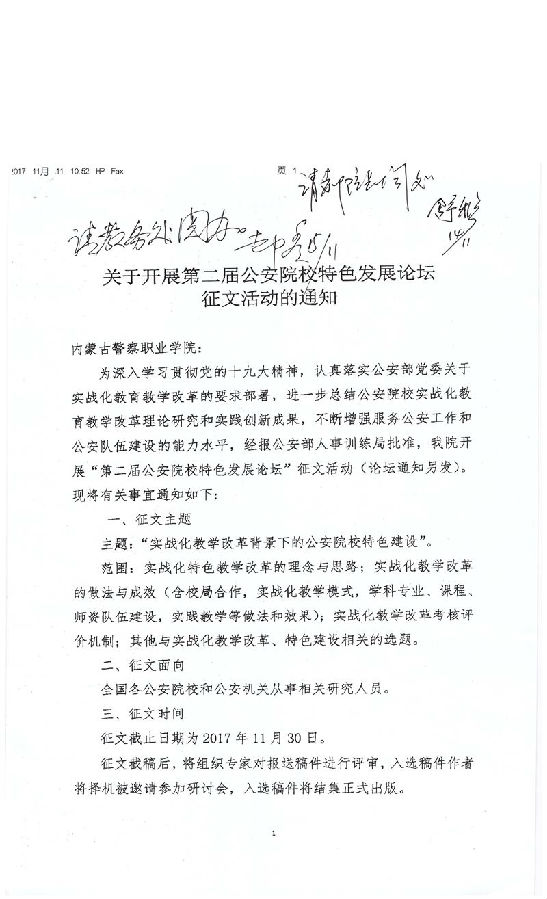 2017 11月 11 10:52 HP Fax 页 1
请教务处阅办。
15/11
14/11
关于开展第二届公安院校特色发展论坛
征文活动的通知
内蒙古警察职业学院：
为深入学习贯彻党的十九大精神，认真落实公安部党委关于
实战化教育教学改革的要求部署，进一步总结公安院校实战化教
育教学改革理论研究和实践创新成果，不断增强服务公安工作和
公安队伍建设的能力水平，经报公安部人事训练局批准，我院开
展“第二届公安院校特色发展论坛”征文活动（论坛通知另发）。
现将有关事宜通知如下：
一、征文主题
主题：“实战化教学改革背景下的公安院校特色建设”。
范围：实战化特色教学改革的理念与思路；实战化教学改革
的做法与成效（含校局合作，实战化教学模式，学科专业、课程、
师资队伍建设，实践教学等做法和效果）；实战化教学改革考核评
价机制；其他与实战化教学改革、特色建设相关的选题。
二、征文面向
全国各公安院校和公安机关从事相关研究人员。
三、征文时间
征文截止日期为 2017 年 11 月 30 日。
征文截稿后，将组织专家对报送稿件进行评审，入选稿件作者
将择机被邀请参加研讨会，入选稿件将结集正式出版。
1